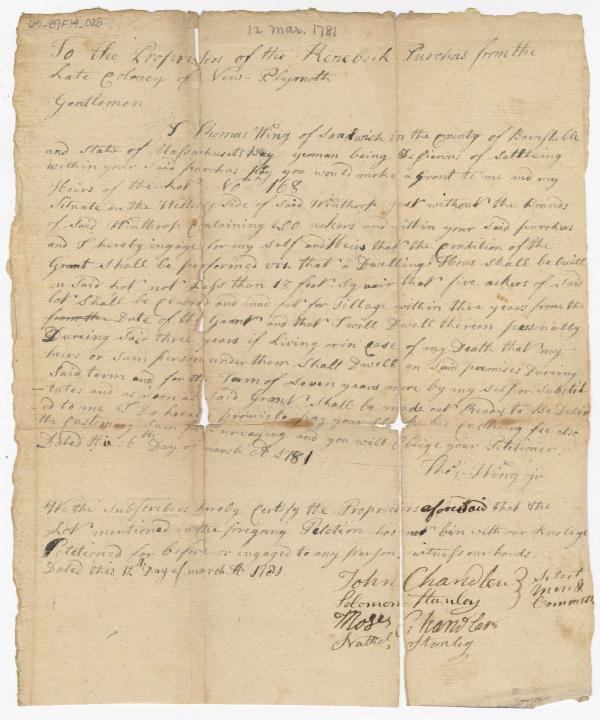 12 Mar. 1781
To the Proprietors of the Kenebeck Purchas from the
Late Coloney of New-Plymoth
Gentlemen
I Thomas Wing of Sandwich in the County of Barnstable
and State of Massachusets Bay yeoman being Desirous of Settleing
within your Said purchas pray you would make a Grant to me and my
Heirs of the Lot No 168
Situate on the Westerly Side of Said Winthrop just without the Bounds
of Said Winthrop Containing 200 ackors and within your Said purchas
and I hereby ingage for my Self and Heirs that the Condition of the
Grant Shall be performed viz that a Dwelling Hous Shall be built
on Said Lot not Less than 18 feet Squair that five ackers of Said
lot Shall be Cleared and mad fit for Tillage within three years from the
from the Date of the Grant and that I will Dwell thereon personally
Dureing Said three years if Living or in Case of my Death that my
heirs or Sum person under them Shall Dwell on Said premises Dureing
Said term and for the Tarm of Seven years more by my Self or Substi
tutes and as Soon as Said Grant Shall be made out Ready to be Deliv
ed to me I Do hereby promis to pay your Customary fee also
the Customary Sum for Surveying and you will oblige your Petitioner
Dated this 6th Day of march AD 1781
Thos Wing jr
We the Subscribers hereby Certify the Proprietors aforesaid that the
Lot mentioned in the foregoing Petition has not bin with our Knolige
Petitioned for before or engaged to any person, witness our hands
Dated this 12th Day of march AD 1781
John Chandler } Select
Solomon Stanley men &
Moses Chandler Committe
Nathel Stanley